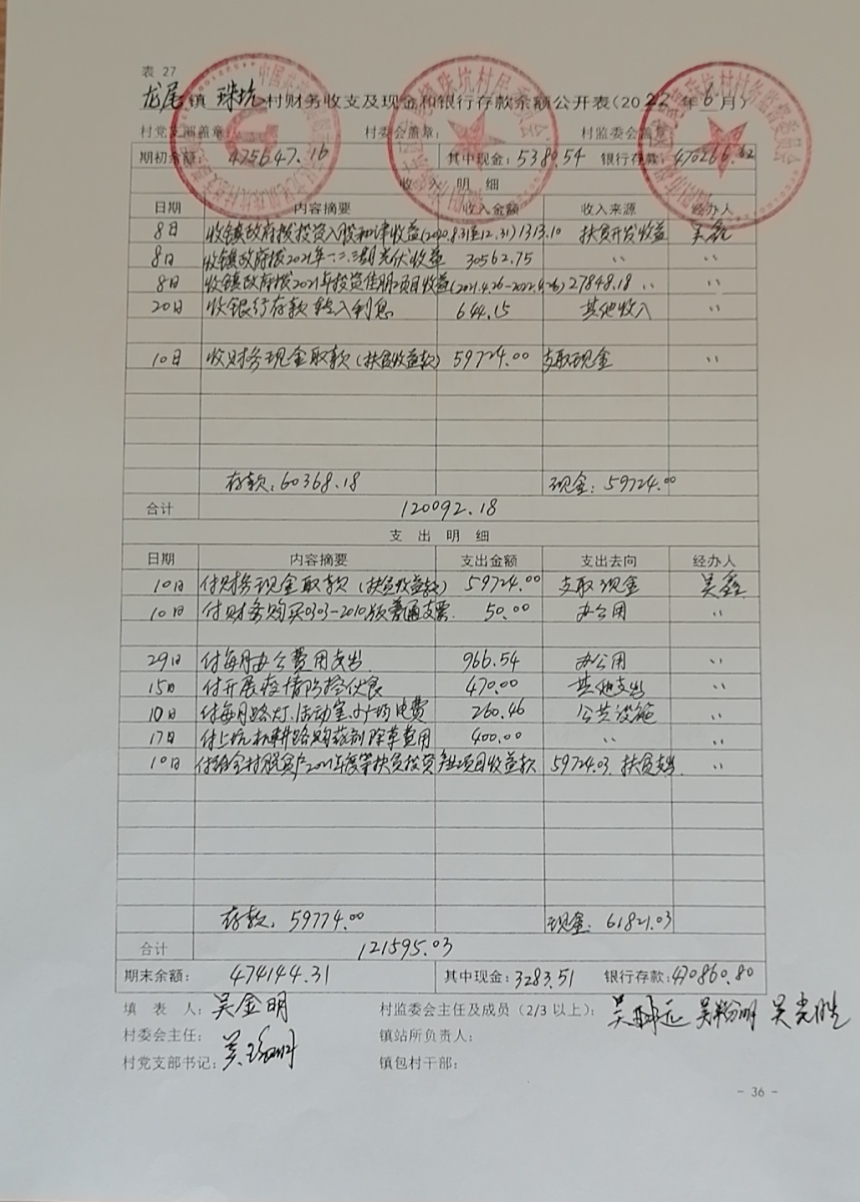 表 27
龙尾镇 珠坑村财务收支及现金和银行存款余额公开表(2022年6月)
村党支部盖章: 村委会盖章: 村监委会盖章
期初余额: 475647.16 其中现金: 5380.54 银行存款: 470266.62
收入明细
日期 内容摘要 收入金额 收入来源 经办人
8日 收镇政府拨投资入股和津收益(2020.8.31至12.31) 1313.10 扶贫开发收益 吴鑫
8日 收镇政府拨2021年一.二.三期光伏收益 30562.75 〃 〃
8日 收镇政府拨2021年投资佳朋项目收益(2021.4.26-2022.4.26) 27848.18 〃 〃
20日 收银行存款转入利息 644.15 其他收入 〃
10日 收财务现金取款(扶贫收益款) 59724.00 支取现金 〃
存款: 60368.18 现金: 59724.00
合计 120092.18
支出明细
日期 内容摘要 支出金额 支出去向 经办人
10日 付财务现金取款(扶贫收益款) 59724.00 支取现金 吴鑫
10日 付财务购买0303-2010版普通支票 50.00 办公用 〃
29日 付每月办公费用支出 966.54 办公用 〃
15日 付开展疫情防控伙食 470.00 其他支出 〃
10日 付每月路灯、活动室、广场电费 260.46 公共设施 〃
17日 付上坑机耕路购药剂除草费用 400.00 〃 〃
10日 付给全村脱贫户2021年度等扶贫投资产业项目收益款 59724.03 扶贫支出 〃
存款: 59774.00 现金: 61821.03
合计 121595.03
期末余额: 474144.31 其中现金: 3283.51 银行存款: 470860.80
填表人: 吴金明 村监委会主任及成员(2/3以上): 吴 吴 吴光胜
村委会主任: 镇站所负责人:
村党支部书记: 吴 镇包村干部:
- 36 -